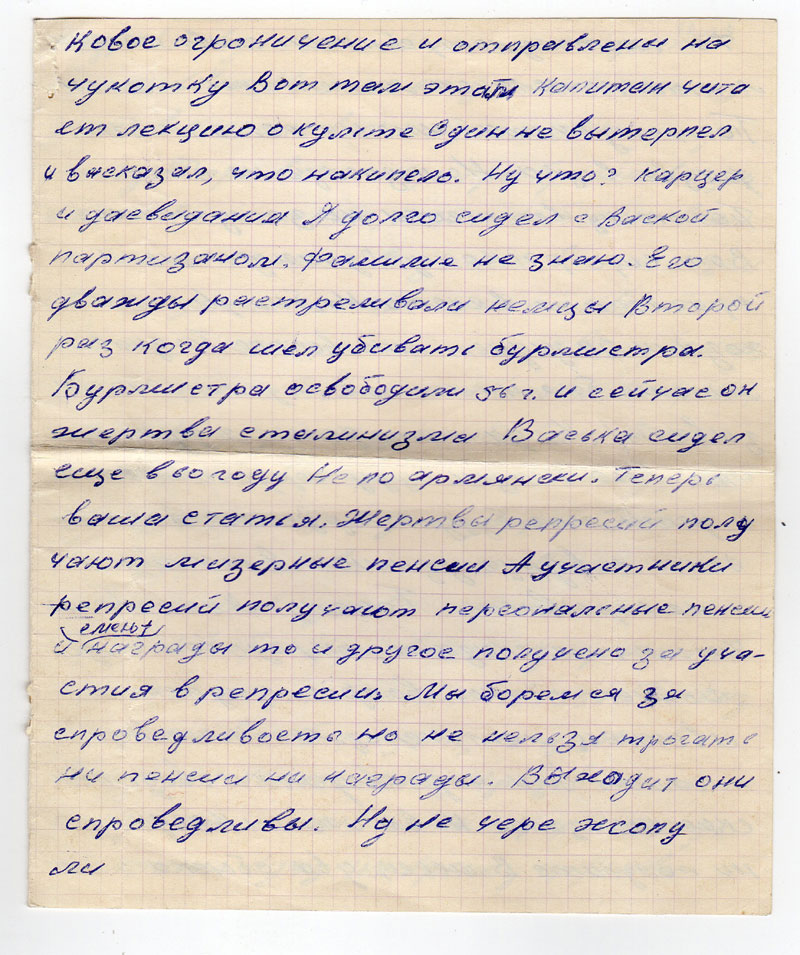 ковое огроничение и отправлены на
чукотку Вот там этат капитан чита
ет лекцию о культе Один не вытерпел
и высказал, что накипело. Ну что? карцер
и досвидания Я долго сидел с Ваской
партизаном. Фамилие не знаю. Его
дважды растреливали немцы Второй
раз когда шел убивать бурмистра.
Бурмистра освободили 56 г. и сейчас он
жертва сталинизма Васька сидел
еще в 60 году Не по армянски. Теперь
ваша статья. Жертвы репресий полу
чают мизерные пенсии А участники
репресий получают персональные пенсии
имеют
и награды то и другое получено за уча-
стия в репресии. Мы боремся за
спроведливость но не нельзя трогать
ни пенсии ни награды. Выходит они
спроведливы. Ну не чере жопу
ли